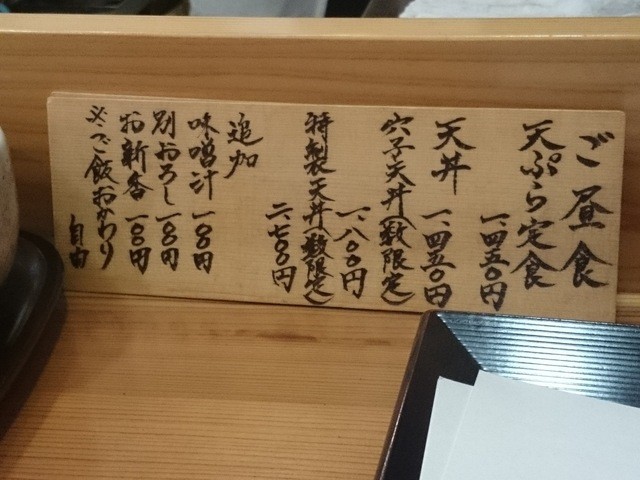 ご昼食
天ぷら定食
一四五〇円
天丼
一、四五〇円
穴子天丼(数限定)
一、八〇〇円
特製天丼(数限定)
二、七〇〇円
追加
味噌汁 一〇〇円
別おろし 一〇〇円
お新香 一〇〇円
※ご飯おかわり自由